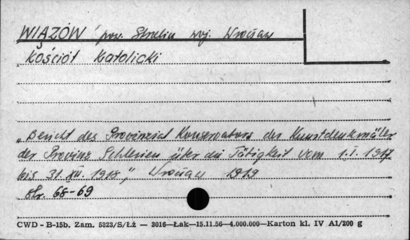 WIĄZÓW pow. Strzelin woj. Wrocław
Kościół Katolicki
„Bericht des Provinzial Konservators der Kunstdenkmäler
der Provinz Schlesien über die Tätigkeit vom 1.I. 1917
bis 31. XII. 1918," Wrocław 1919
Str. 68-69
CWD - B-15b, Zam. 5823/S/Łż — 2016—Łak—15.11.56—4.000.000—Karton kl. IV A1/200 g